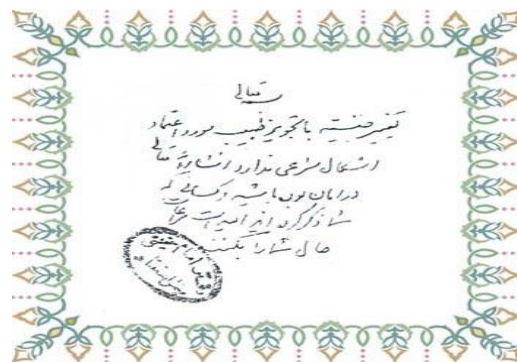 بسمه تعالی
تغییر جنسیت با تجویز طبیب مورد اعتماد
اشکال شرعی ندارد انشاءالله تعالی
در امان بوده باشید و کسانی که
شما ذکر کرده اید امید است مراعات
حال شما را بکنند